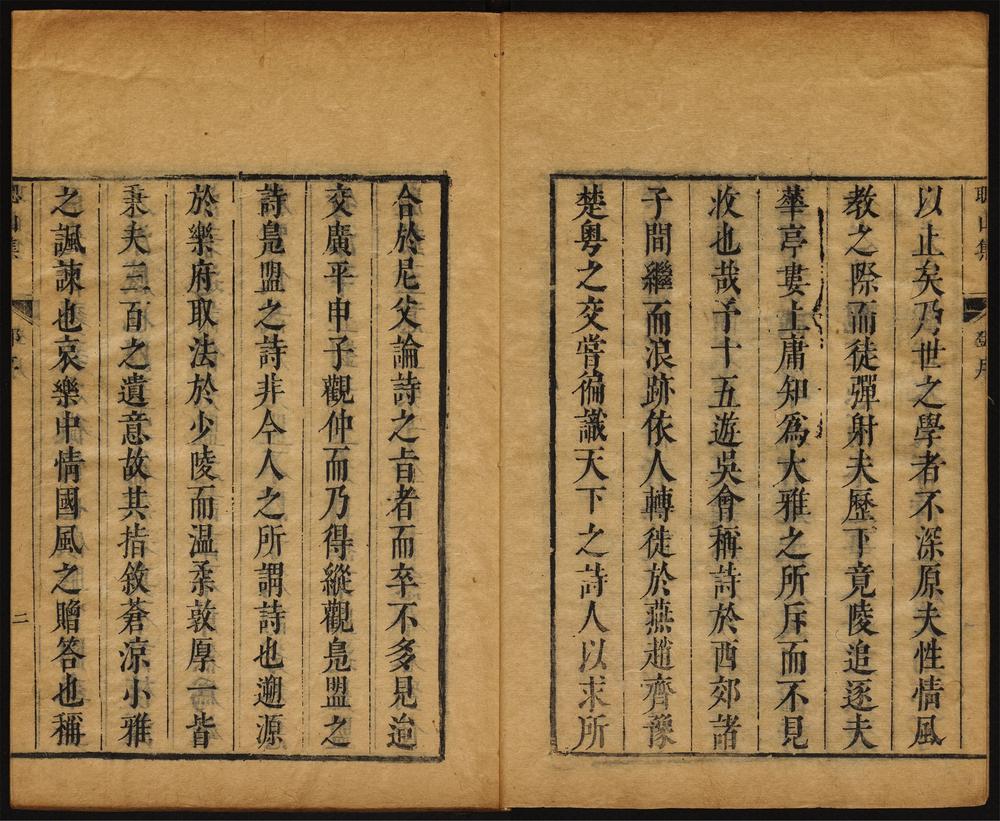 聰山集
鄧序
以止矣乃世之學者不深原夫性情風
教之際而徒彈射夫歷下竟陵追逐夫
華亭婁上庸知爲大雅之所斥而不見
收也哉予十五遊吳會稱詩於西郊諸
子間繼而浪跡依人轉徙於燕趙齊豫
楚粵之交嘗徧識天下之詩人以求所
合於尼父論詩之旨者而卒不多見迨
交廣平申子觀仲而乃得縱觀鳧盟之
詩鳧盟之詩非今人之所謂詩也遡源
於樂府取法於少陵而温柔敦厚一皆
秉夫三百之遺意故其指敘蒼涼小雅
之諷諫也哀樂中情國風之贈答也稱
聰山集
二